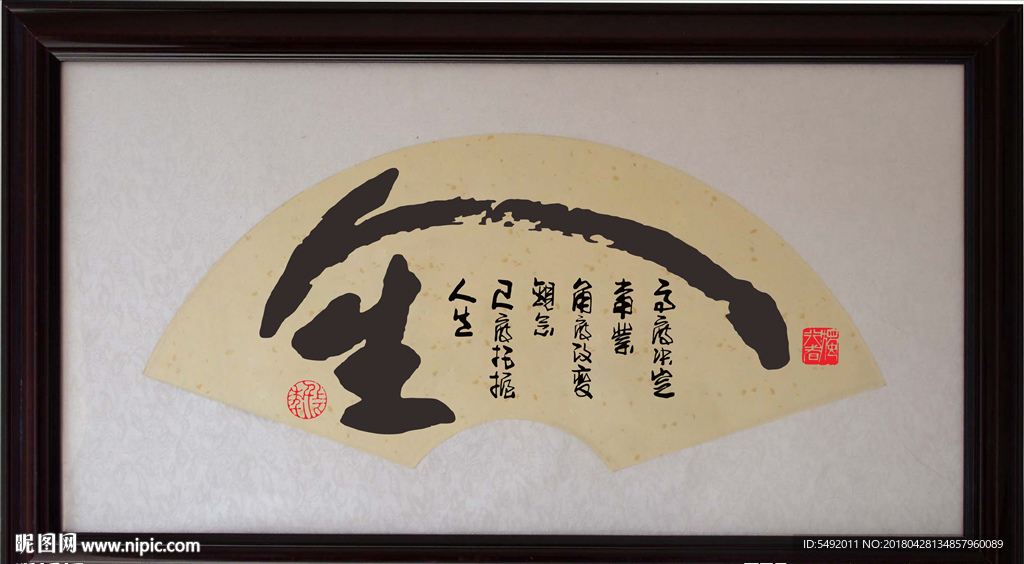 人生
高度决定
事業
角度改变
觀念
尺度把握
人生
昵图网 www.nipic.com
ID:5492011 NO:20180428134857960089